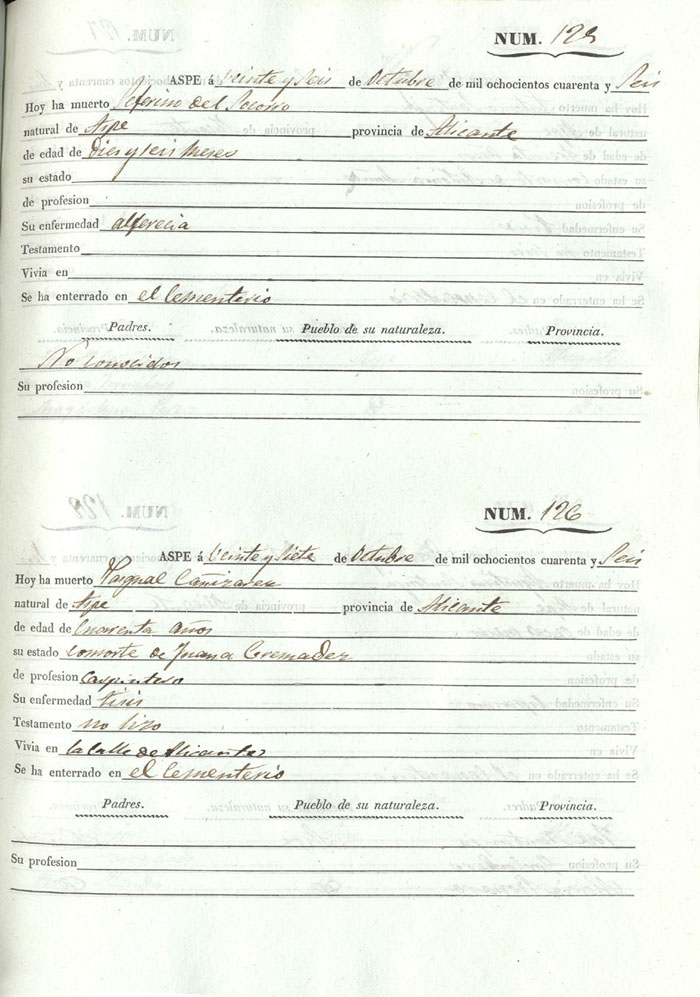 NUM. 125
ASPE á Veinte y Seis de Octubre de mil ochocientos cuarenta y Seis
Hoy ha muerto Seferino del Socorro
natural de Aspe provincia de Alicante
de edad de Dies y seis meses
su estado
de profesion
Su enfermedad alferecia
Testamento
Vivia en
Se ha enterrado en el Cementerio
Padres. Pueblo de su naturaleza. Provincia.
No conosidos
Su profesion
NUM. 126
ASPE á Veinte y Siete de Octubre de mil ochocientos cuarenta y Seis
Hoy ha muerto Pasqual Cañizares
natural de Aspe provincia de Alicante
de edad de Cuarenta años
su estado consorte de Juana Cremades
de profesion Carpintero
Su enfermedad tisis
Testamento no hizo
Vivia en la Calle de Alicante
Se ha enterrado en el Cementerio
Padres. Pueblo de su naturaleza. Provincia.
Su profesion